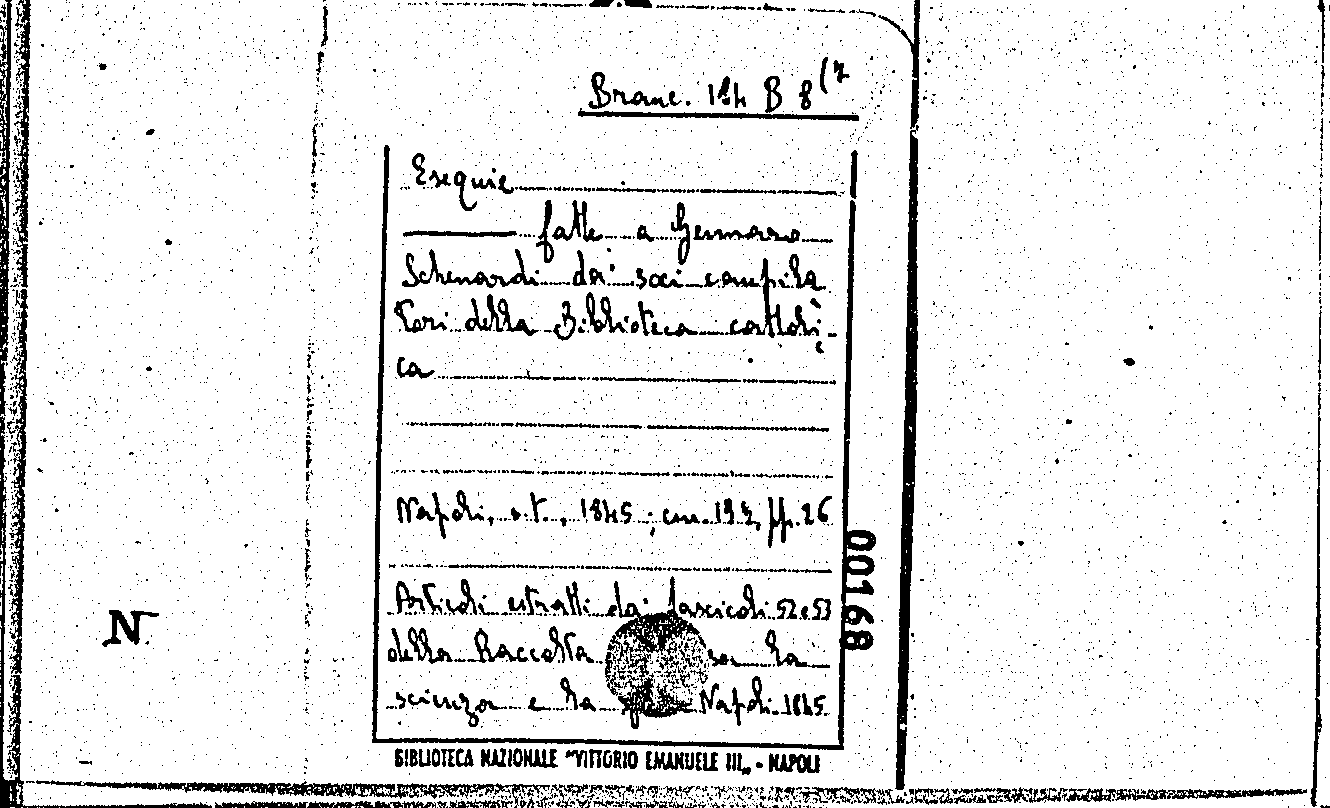 Branc. 124 B 8(7
Esequie
fatte a Gennaro
Schenardi da' soci compila
tori della Biblioteca cattoli-
ca
Napoli, s.t., 1845; cm. 19½, pp. 26
Articoli estratti da' fascicoli 52 e 53
della Raccolta la
scienza e la Napoli 1845
00168
N
BIBLIOTECA NAZIONALE "VITTORIO EMANUELE III„ - NAPOLI